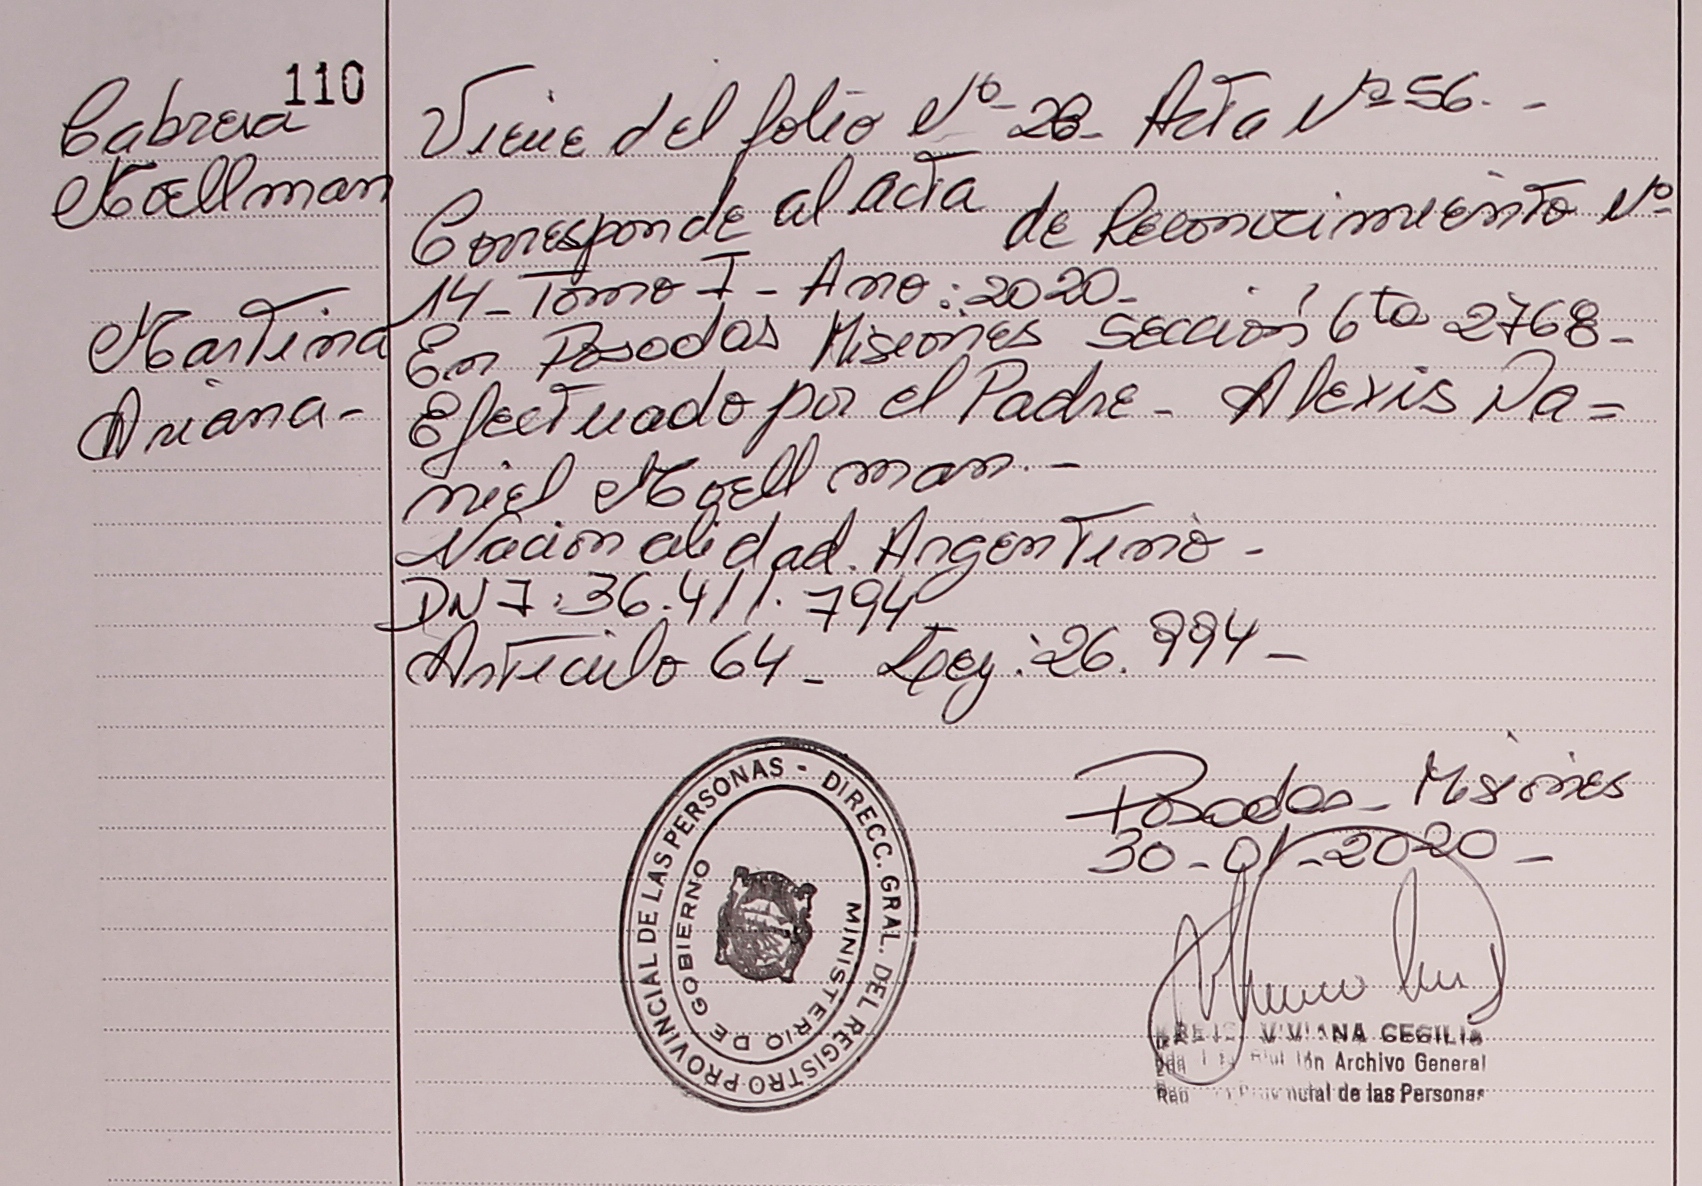 110
Cabrera
Moellman
Martina
Ariana-
Viene del folio Nº 28- Acta Nº 56.-
Corresponde al acta de Reconocimiento Nº
14- Tomo I- Año: 2020-
En Posadas Misiones Sección 6ta 2768-
Efectuado por el Padre- Alexis Da=
niel Moellman.-
Nacionalidad. Argentino-
DNI: 36.411.794
Articulo 64- Ley: 26.994-
Posadas- Misiones
30-01-2020-
DIRECC. GRAL. DEL REGISTRO PROVINCIAL DE LAS PERSONAS -
MINISTERIO DE GOBIERNO
VIVIANA CECILIA
Archivo General
de las Personas